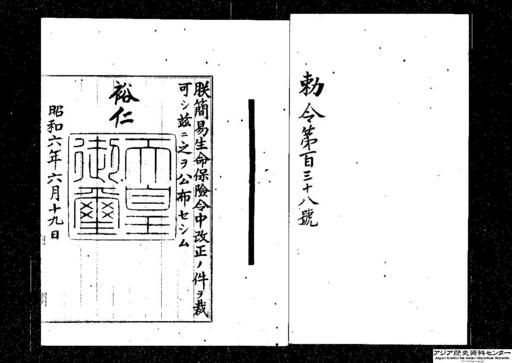 勅令第百三十八號
朕簡易生命保險令中改正ノ件ヲ裁
可シ玆ニ之ヲ公布セシム
裕仁
天皇御璽
昭和六年六月十九日
アジア歴史資料センター
Japan Center for Asian Historical Records